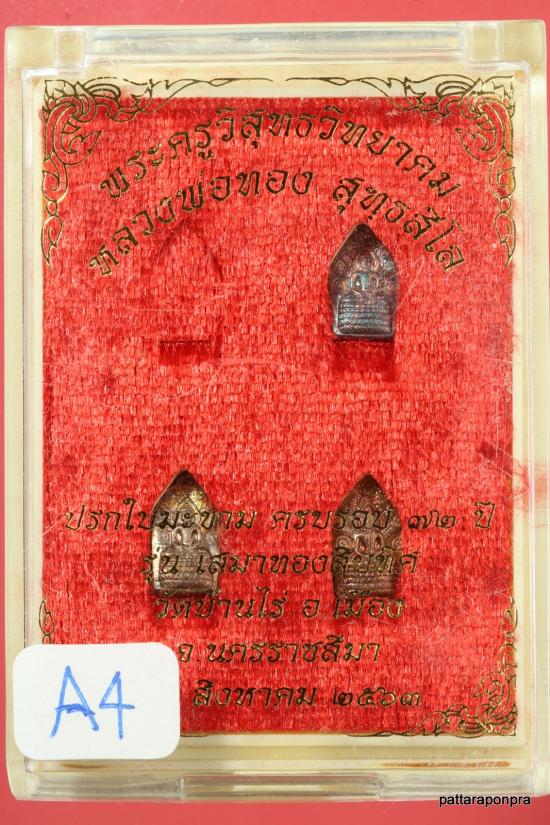 พระครูวิสุทธวิทยาคม
หลวงพ่อทอง สุทฺธสีโล
ปรกใบมะขาม ครบรอบ ๗๒ ปี
รุ่น เสมาทองสิบทิศ
วัดบ้านไร่ อ.เมือง
จ.นครราชสีมา
สิงหาคม ๒๕๖๓
A4
pattaraponpra